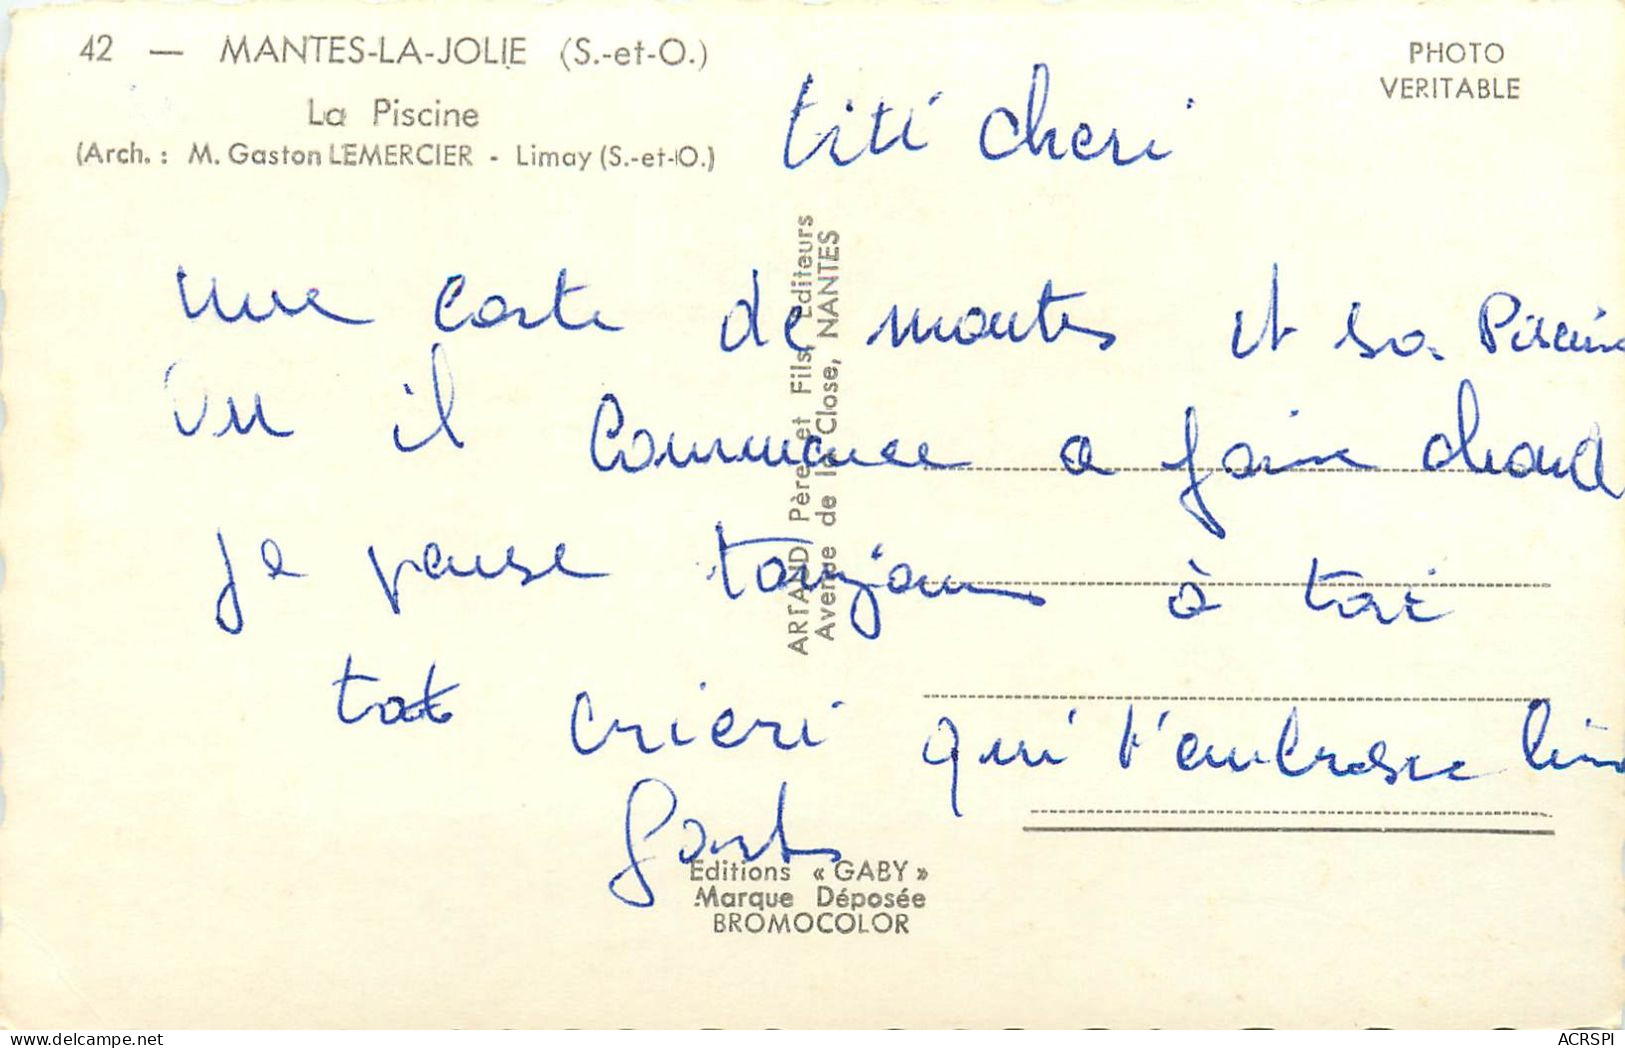 42 — MANTES-LA-JOLIE (S.-et-O.)
La Piscine
(Arch. : M. Gaston LEMERCIER - Limay (S.-et-O.)
PHOTO
VERITABLE
titi cheri
une carte de mantes et sa Piscine
vu il commence a faire chaud
je pense toujours à toi
ta cheri qui t'embrasse bien
fort
ARTAUD Père et Fils, Editeurs
Avenue de la Close, NANTES
Editions « GABY »
Marque Déposée
BROMOCOLOR
ACRSPI